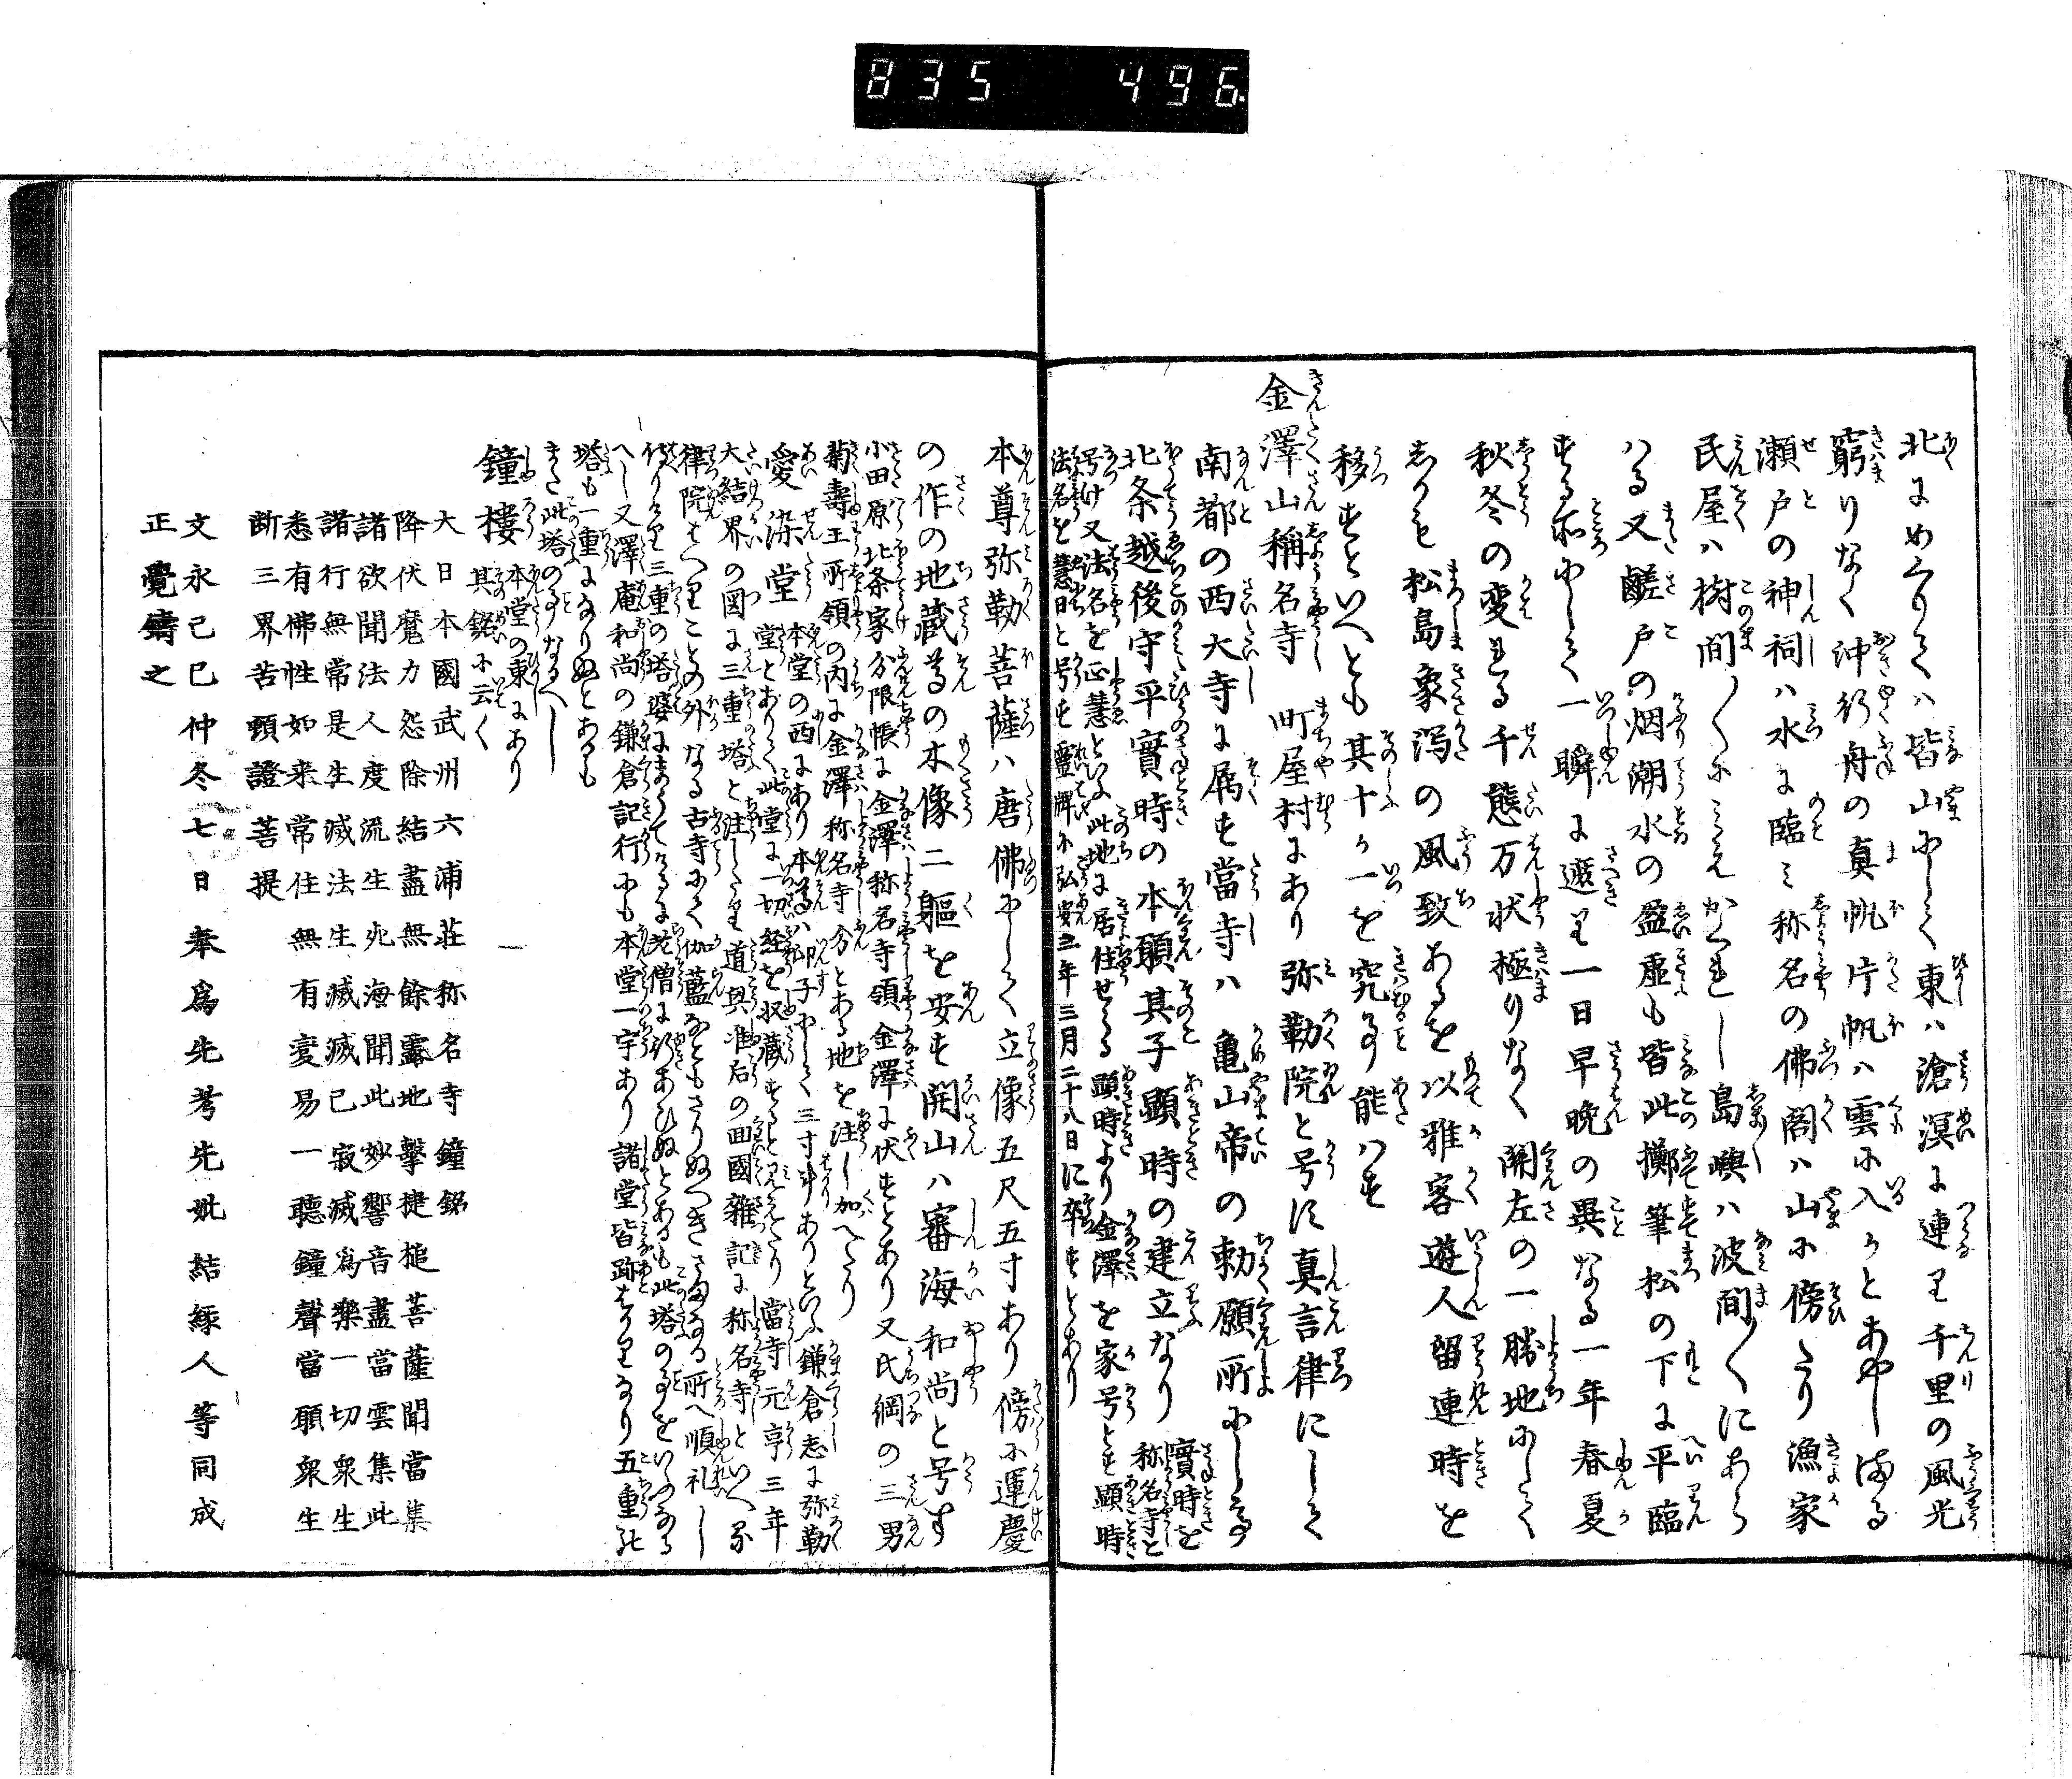 835 496
北にめくりてハ皆山にして東ハ滄溟に連り千里の風光
窮りなく沖行舟の真帆片帆ハ雲に入かとあやしまる
瀬戸の神祠ハ水に臨ミ称名の佛閣ハ山に傍たり漁家
民屋ハ樹間〱にミえかくれし島嶼ハ波間〱にあら
ハる又鹺戸の烟潮水の盈虚も皆此擲筆松の下に平臨
する所にして一瞬に遮り一日早晩の異なる一年春夏
秋冬の変れる千態万状極りなく関左の一勝地にして
しかも松島象泻の風致あるを以雅客遊人留連時を
移すといへとも其十か一を究る事能ハす
金澤山稱名寺 町屋村にあり弥勒院と号に真言律にして
南都の西大寺に属す當寺ハ亀山帝の勅願所にして
北条越後守平實時の本願其子顕時の建立なり 實時を称名寺と
号け又法名を正慧といふ此地に居住せる 顕時より金澤を家号とす顕時
法名を慧日と号す靈牌に弘安三年三月二十八日に卒すとあり
本尊弥勒菩薩ハ唐佛にして立像五尺五寸あり傍に運慶
の作の地藏等の木像二軀を安す開山ハ審海和尚と号す
小田原北条家分限帳に金澤称名寺領金澤に伏すとあり又氏綱の三男
菊壽王所領の内に金澤称名寺分とある地を注し加へたり
愛染堂 本堂の西にあり本尊ハ
大結界の図に三重塔と注したり 道興准后の回國雜記に称名寺といへる
律院はへりことの外なる古寺にて伽藍なともさりぬへきさまなる所へ順礼し
侍りけり三重の塔婆にまうてけるに老僧に行あひぬとあるも此塔の事をいふなる
へし又澤庵和尚の鎌倉記行にも本堂一宇あり諸堂皆跡はかりなり五重の
塔も一重になりぬとあるも
また此塔の事なるへし
鐘樓 本堂の東にあり
其銘に云く
大日本國武州六浦莊称名寺鐘銘
降伏魔力怨除結盡無餘露地擊揵槌菩薩聞當集
諸欲聞法人度流生死海聞此妙響音盡當雲集此
諸行無常是生滅法生滅滅已寂滅為樂一切衆生
悉有佛性如来常住無有変易一聽鐘聲當願衆生
断三界苦頓證菩提
文永己巳仲冬七日奉爲先考先妣結縁人等同成
正覺鑄之